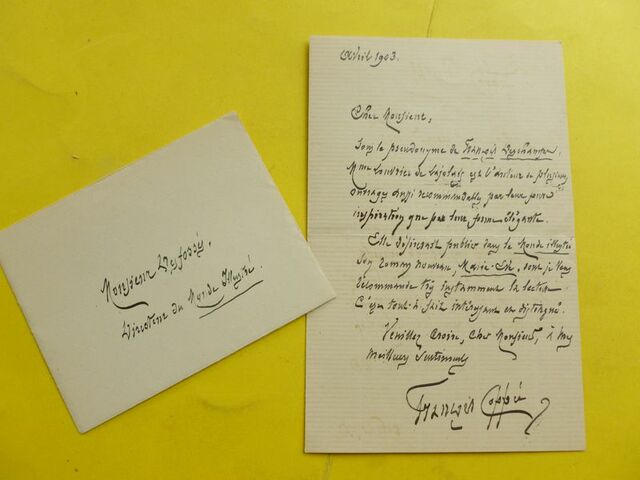 Avril 1903.
Cher Monsieur,
Sous le pseudonyme de François Deschamps,
Mme Loudrier de Lajolais est l'auteur de plusieurs
ouvrages aussi recommandables par leur pure
inspiration que par leur forme élégante.
Elle désirerait publier dans le Monde illustré
son roman nouveau, dont je vous
recommande très instamment la lecture.
C'est tout à fait intéressant et distingué.
Veuillez croire, cher Monsieur, à mes
meilleurs sentiments
François Coppée
Monsieur Desfossés,
Directeur du Monde Illustré.